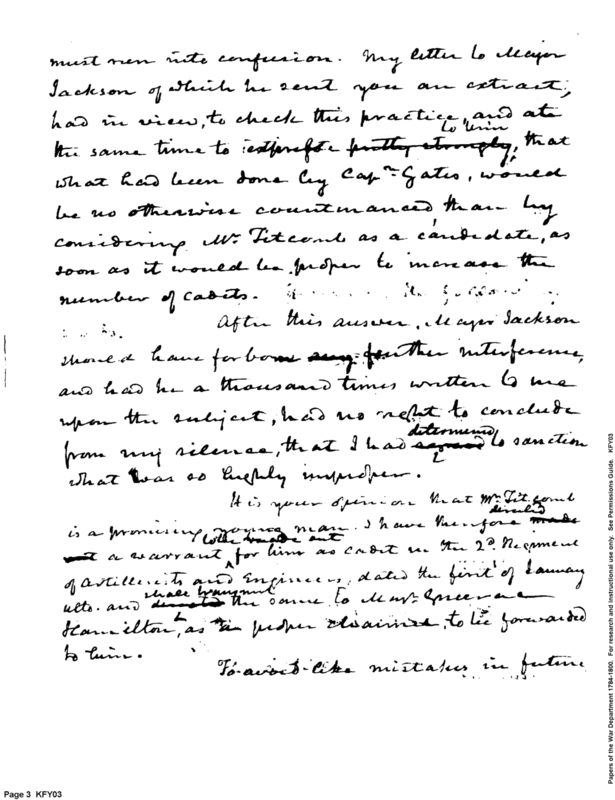 must run into confusion. My letter to Major
Jackson of which he sent you an extract,
had in view, to check this practice, and at
the same time to express to him pretty strongly, that
what had been done by Capn Gates, would
be no otherwise countenanced than by
considering Mr Titcomb as a candidate, as
soon as it would be proper to increase the
number of cadets.
After this answer, Major Jackson
should have forborne any further interference,
and had he a thousand times written to me
upon the subject, had no right to conclude
from my silence, that I had determined to sanction
what was so highly improper.
It is your opinion that Mr Titcomb
is a promising young man. I have therefore directed made
out a warrant to be made out for him as cadet in the 2d Regiment
of Artillerists and Engineers, dated the first of January
ulto. and shall transmit directed the same to Major General
Hamilton, as the proper channel, to be forwarded
to him.
To avoid like mistakes in future
Page 3 KFY03
Papers of the War Department 1784-1800. For research and instructional use only. See Permissions Guide. KFY03